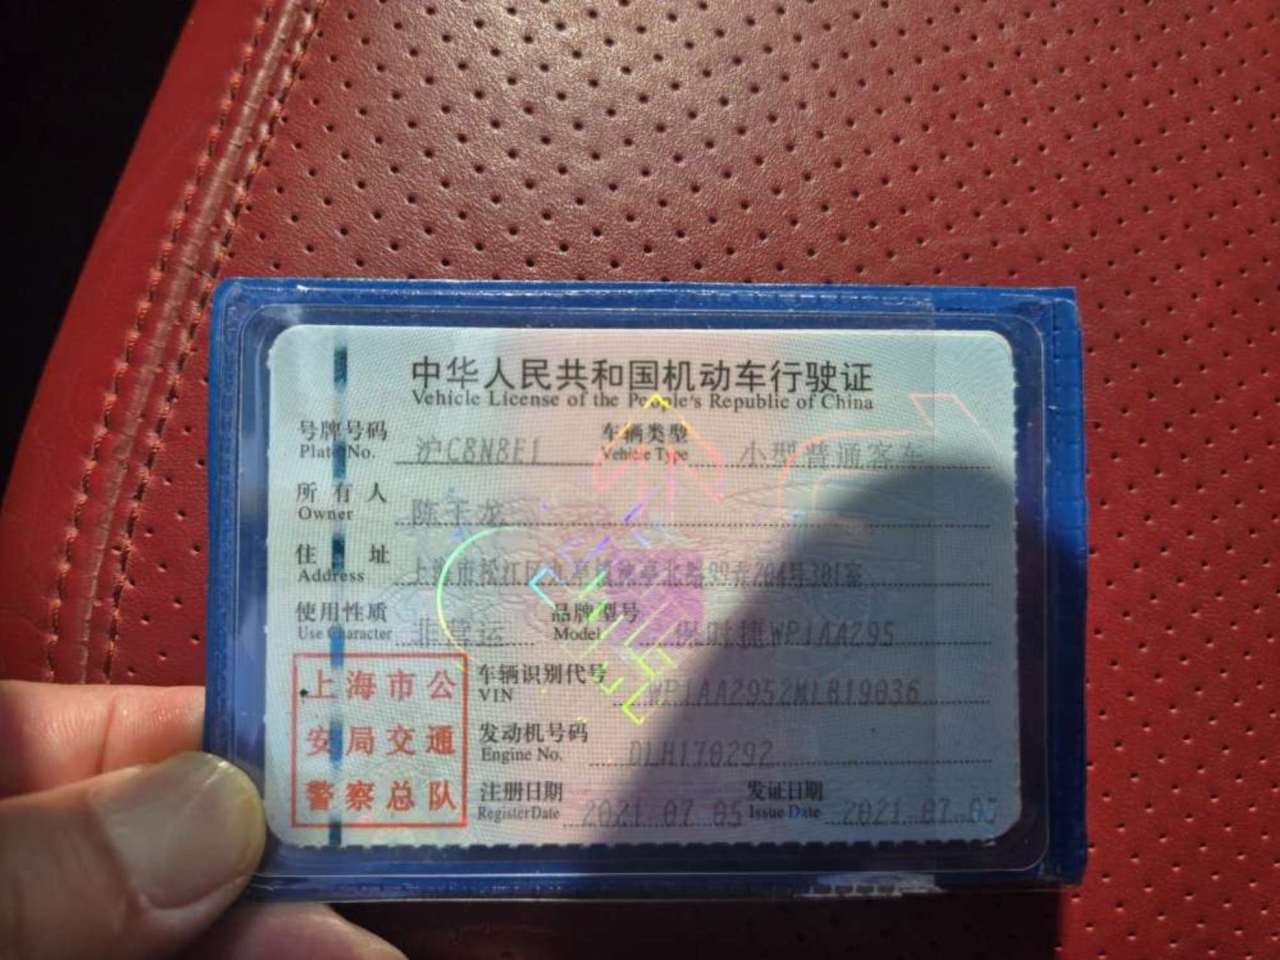 中华人民共和国机动车行驶证
Vehicle License of the People's Republic of China
号牌号码 沪C8N8E1 车辆类型 小型普通客车
Plate No. Vehicle Type
所有人 陈 龙
Owner
住址 上海市松江区 北路99弄204号301室
Address
使用性质 非营运 品牌型号 保时捷WP1AA295
Use Character Model
上海市公 车辆识别代号 WP1AA2952MLB19036
VIN
安局交通 发动机号码 DLH170292
Engine No.
警察总队 注册日期 2021-07-05 发证日期 2021-07-05
Register Date Issue Date